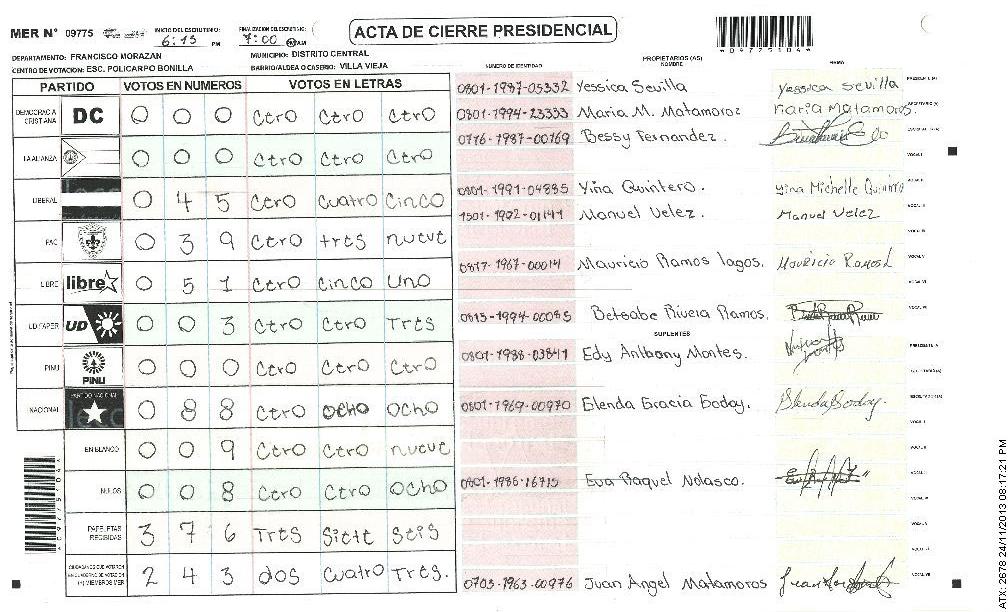 MER N° 09775 INICIO DEL ESCRUTINIO: 6:15 PM FINALIZACION DEL ESCRUTINIO: 7:00 AM
ACTA DE CIERRE PRESIDENCIAL
DEPARTAMENTO: FRANCISCO MORAZAN MUNICIPIO: DISTRITO CENTRAL
CENTRO DE VOTACION: ESC. POLICARPO BONILLA BARRIO/ALDEA O CASERIO: VILLA VIEJA
PARTIDO VOTOS EN NUMEROS VOTOS EN LETRAS
DEMOCRACIA CRISTIANA DC 0 0 0 Cero Cero Cero
LA ALIANZA 0 0 0 Cero Cero Cero
LIBERAL 0 4 5 Cero Cuatro Cinco
PAC 0 3 9 Cero tres nueve
LIBRE libre 0 5 1 Cero Cinco Uno
UD FAPER UD 0 0 3 Cero Cero Tres
PINU PINU 0 0 0 Cero Cero Cero
NACIONAL 0 8 8 Cero OCHO Ocho
EN BLANCO 0 0 9 Cero Cero nueve
NULOS 0 0 8 Cero Cero Ocho
PAPELETAS RECIBIDAS 3 7 6 Tres Siete Seis
CIUDADANOS QUE VOTARON EN CUADERNO DE VOTACION (+) MIEMBROS MER 2 4 3 dos Cuatro Tres.
PROPIETARIOS (AS)
NUMERO DE IDENTIDAD NOMBRE FIRMA
0801-1987-05332 Yessica Sevilla Yessica Sevilla PRESIDENTE (A)
0801-1994-23333 Maria M. Matamoroz Maria Matamoros. SECRETARIO (A)
Bessy Fernandez.
VOCAL I
0801-1991-04885 Yina Quintero. Yina Michelle Quintero
Manuel Velez. Manuel Velez
Mauricio Ramos lagos. Mauricio Ramos L
Betsabe Rivera Ramos.
SUPLENTES
Edy Anthony Montes. PRESIDENTE (A)
0801-1969-00970 Elenda Gracia Godoy. Elenda Godoy.
0801-1986-16715 Eva Raquel Nolasco.
0703-1963-00976 Juan Angel Matamoros
ATX-2678 24/11/2013 08:17:21 PM